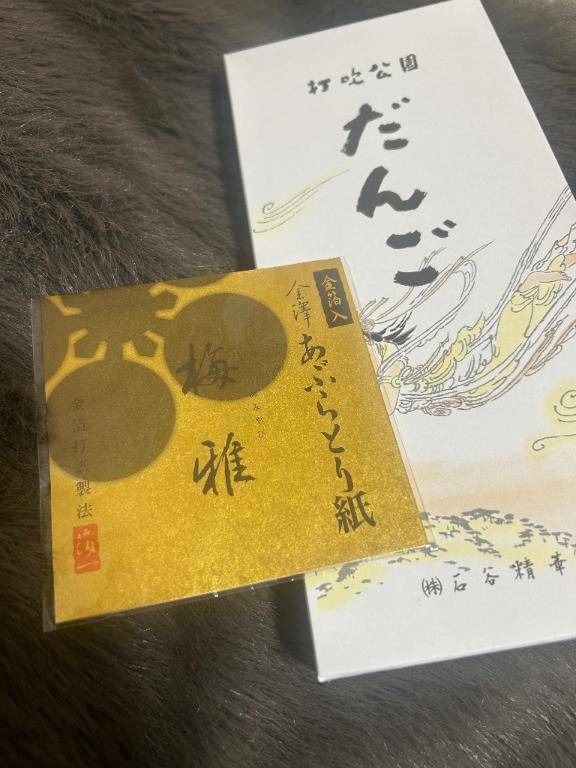 打吹公園
だんご
㈱石谷精華
金箔入
金澤
あぶらとり紙
梅雅
みやび
金箔打紙製法